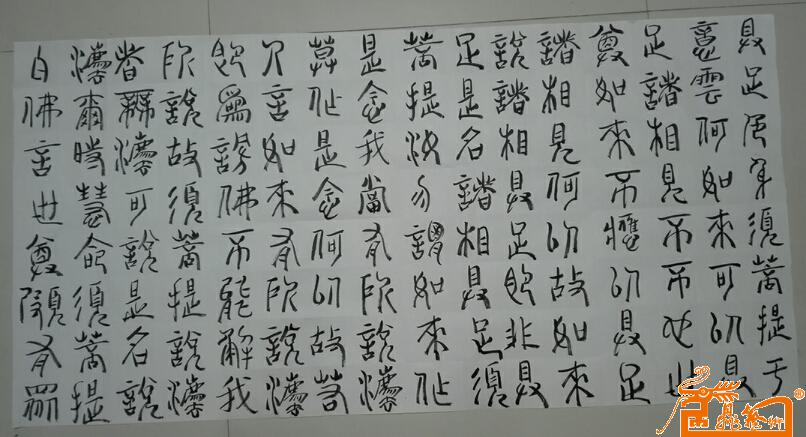 具足色身須菩提于
意雲何如來可以具
足諸相見不不也世
尊如來不應以具足
諸相見何以故如來
說諸相具足即非具
足是名諸相具足須
菩提汝勿謂如來作
是念我當有所說法
莫作是念何以故若
人言如來有所說法
即為謗佛不能解我
所說故須菩提說法
者無法可說是名說
法爾時慧命須菩提
白佛言世尊頗有眾